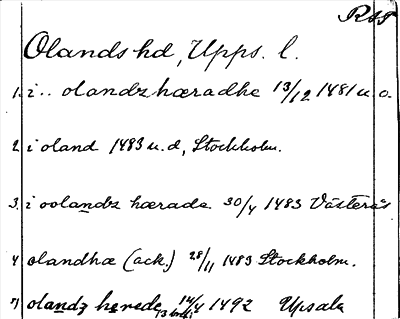 RAP
Olands hd, Upps. l.
1. i .. olandz hæradhe 13/12 1481 u. o.
2. i oland 1483 u. d, Stockholm.
3. i oolandz hærade 30/4 1483 Västerås
4 olandhæ (ack.) 28/11 1483 Stockholm.
5) olandz herede 14/4 1492 Upsala